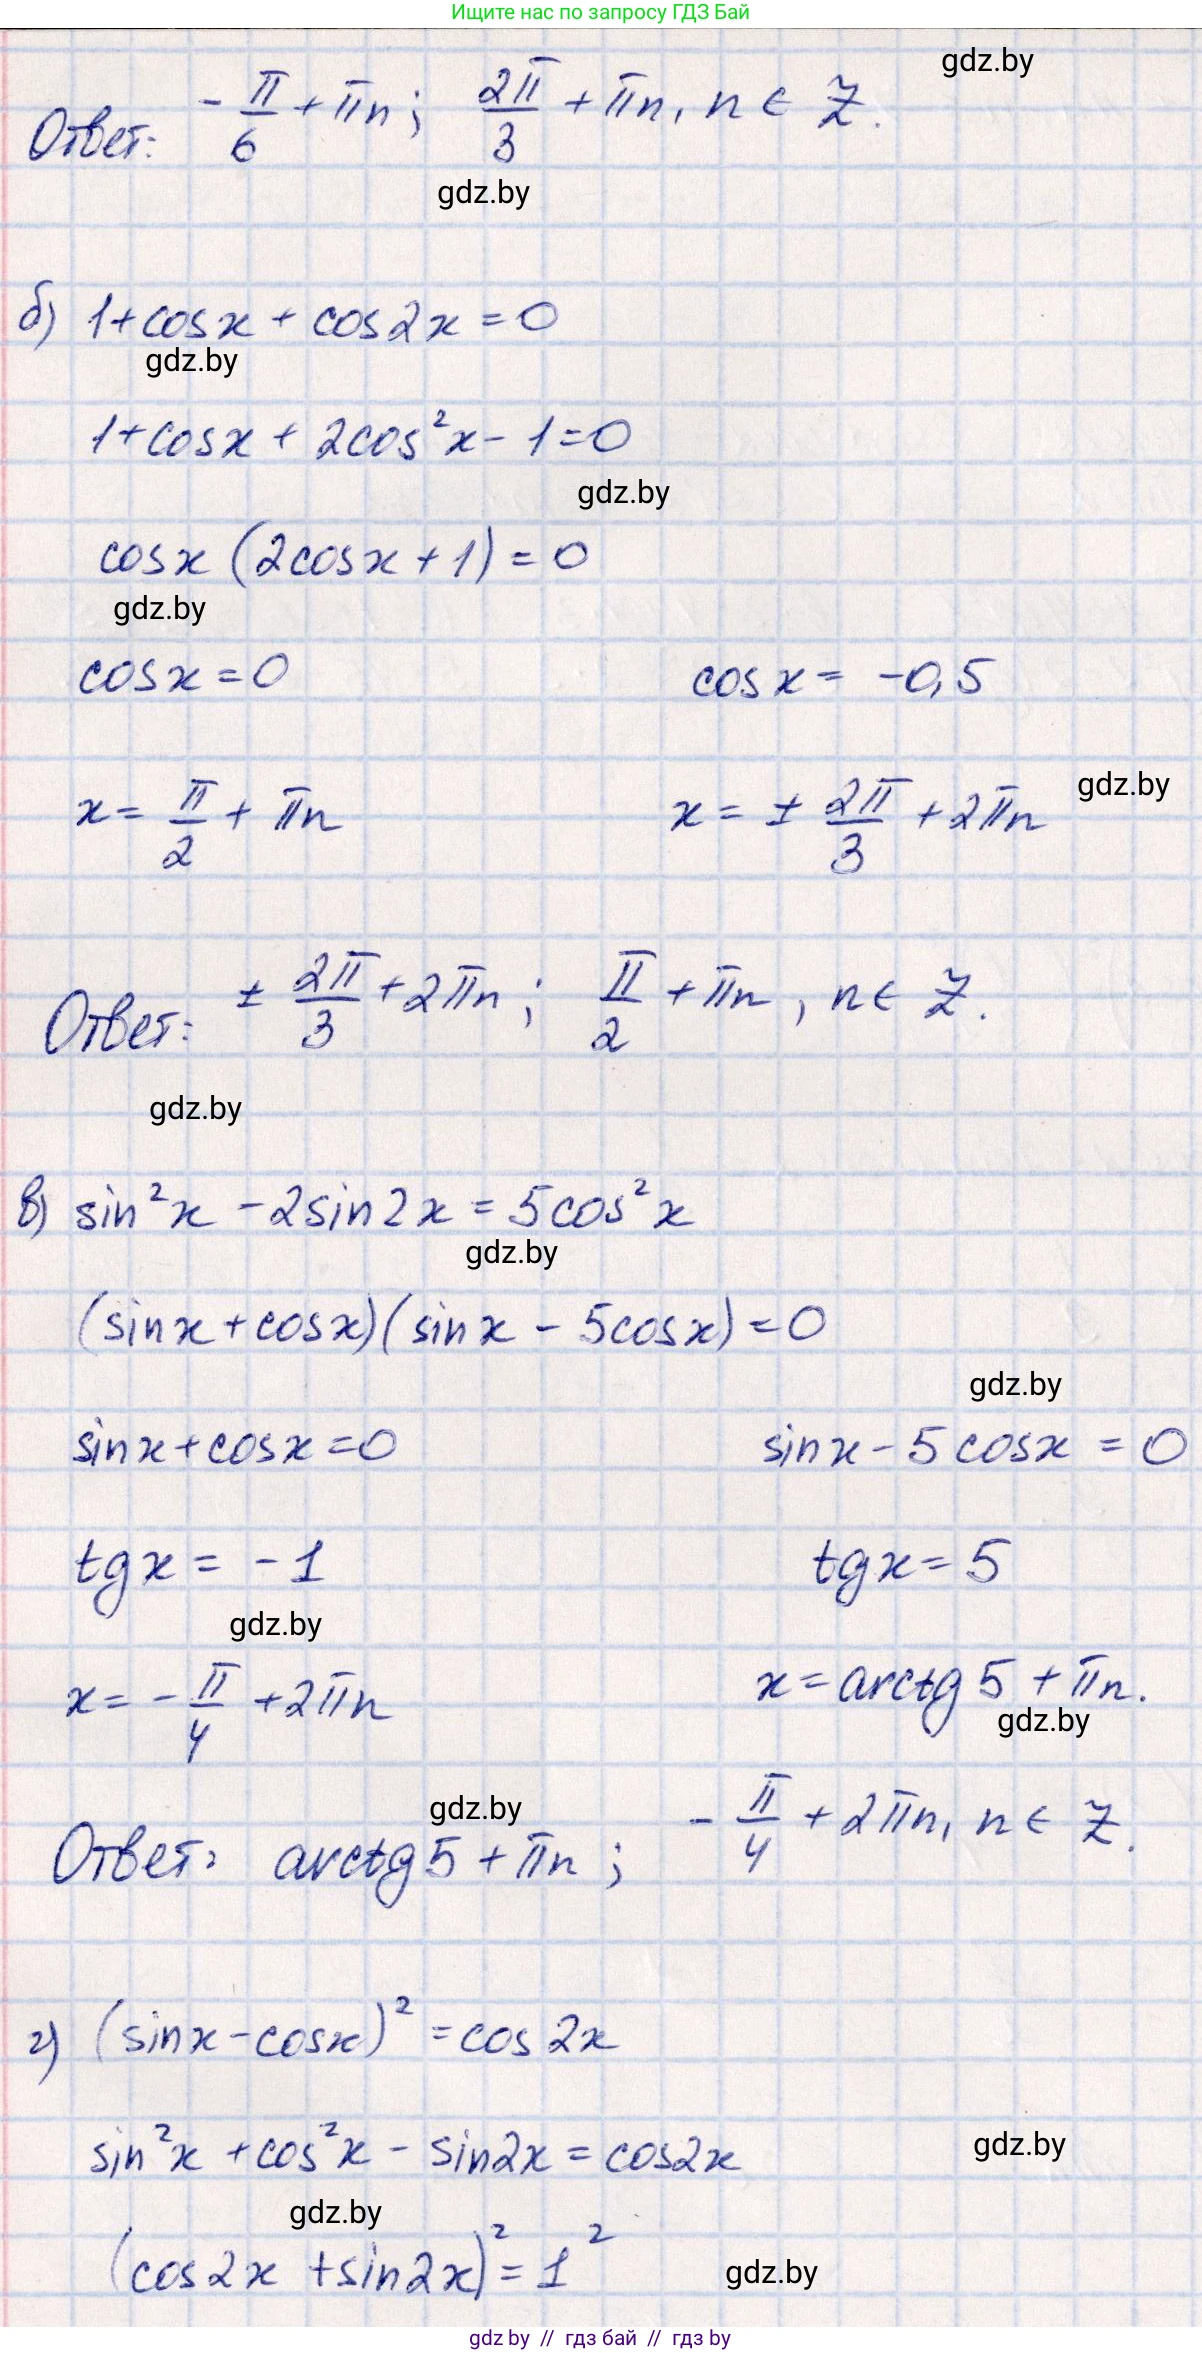 Ищите нас по запросу ГДЗ Бай
gdz.by
Ответ: -π/6 + πn; 2π/3 + πn, n ∈ Z.
gdz.by
б) 1+cosx + cos2x = 0
gdz.by
1+cosx + 2cos²x - 1 = 0
gdz.by
cosx (2cosx + 1) = 0
gdz.by
cosx = 0 cosx = -0,5
gdz.by
x = π/2 + πn x = ± 2π/3 + 2πn
Ответ: ± 2π/3 + 2πn; π/2 + πn, n ∈ Z.
gdz.by
в) sin²x - 2sin2x = 5cos²x
gdz.by
(sinx + cosx)(sinx - 5cosx) = 0
gdz.by
sinx + cosx = 0 sinx - 5cosx = 0
tgx = -1 tgx = 5
gdz.by
x = -π/4 + 2πn x = arctg5 + πn.
gdz.by
gdz.by
Ответ: arctg5 + πn; -π/4 + 2πn, n ∈ Z.
г) (sinx - cosx)² = cos2x
sin²x + cos²x - sin2x = cos2x
gdz.by
gdz.by
(cos2x + sin2x)² = 1²
gdz.by
gdz by // гдз бай // гдз by